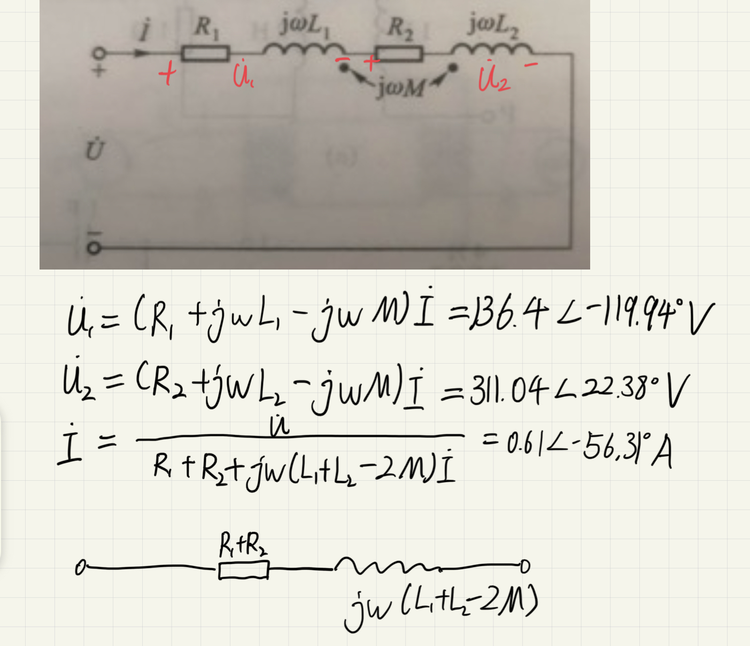 İ R₁ jωL₁ R₂ jωL₂
+ + U̇₁ - + jωM U̇₂ -
U̇
-
U̇₁ = (R₁ + jwL₁ - jwM)İ = 136.4∠-119.94°V
U̇₂ = (R₂ + jwL₂ - jwM)İ = 311.04∠22.38°V
İ = U̇ / R₁ + R₂ + jw(L₁+L₂-2M)İ = 0.61∠-56.31°A
R₁+R₂
jw(L₁+L₂-2M)